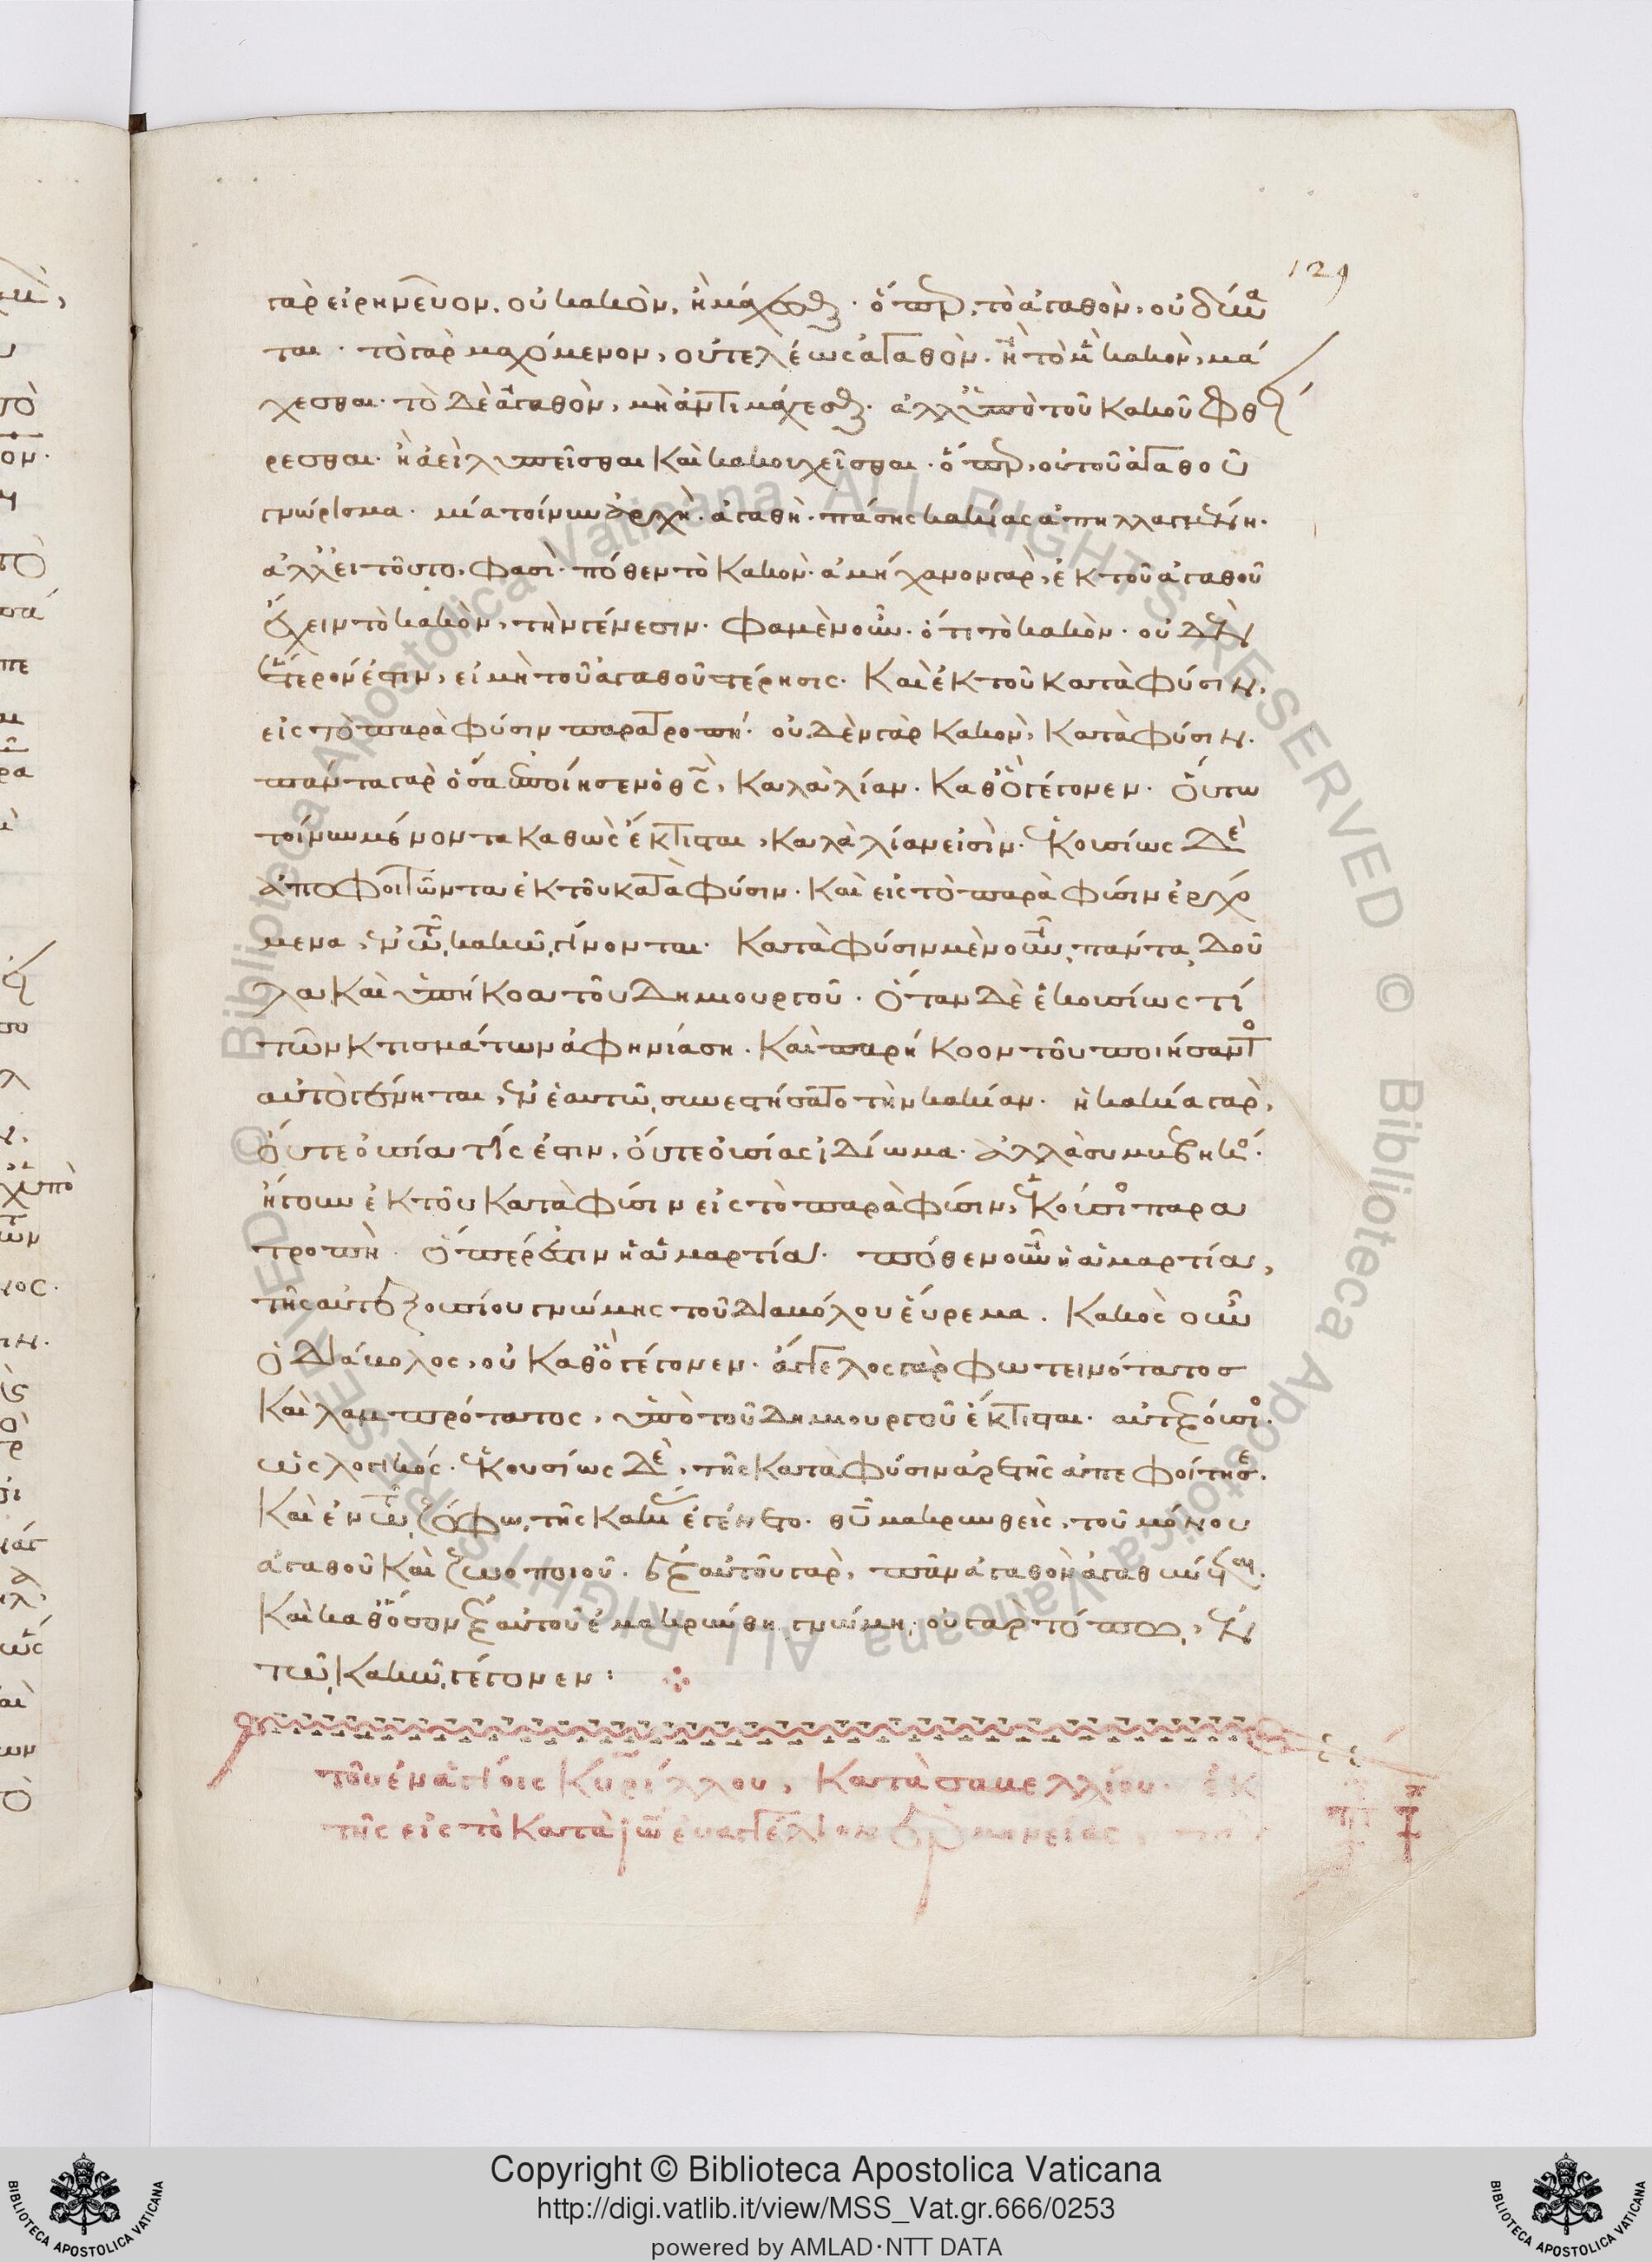 129
γὰρ εἰρηνεῦον, οὐ κακὸν, ἢ μάχεσθαι· ὅπερ, τὸ ἀγαθὸν, οὐ δύνα
ται· τὸ γὰρ μαχόμενον, οὐ τελέως ἀγαθὸν. ἢ τὸ μὲν κακὸν, μά
χεσθαι· τὸ δὲ ἀγαθὸν, μὴ ἀντιμάχεσθαι· ἀλλ' ὑπὸ τοῦ κακοῦ φθεί
ρεσθαι· ἢ ἀεὶ λυπεῖσθαι καὶ κακουχεῖσθαι· ὅπερ, οὐ τοῦ ἀγαθοῦ
γνώρισμα· μία τοίνυν ἀρχὴ· ἀγαθὴ· πάσης κακίας ἀπηλλαγμένη.
ἀλλ' εἰ τοῦτο, φασὶ· πόθεν τὸ κακὸν· ἀμήχανον γὰρ, ἐκ τοῦ ἀγαθοῦ
ἔχειν τὸ κακὸν, τὴν γένεσιν· φαμὲν οὖν· ὅτι τὸ κακὸν· οὐδὲν
ἕτερόν ἐστιν, εἰ μὴ τοῦ ἀγαθοῦ στέρησις· καὶ ἐκ τοῦ κατὰ φύσιν,
εἰς τὸ παρὰ φύσιν παρατροπή· οὐδὲν γὰρ κακὸν, κατὰ φύσιν.
πάντα γὰρ ὅσα ἐποίησεν ὁ θς, καλὰ λίαν· καθ' ὃ γέγονεν· οὕτω
τοίνυν μένοντα καθὼς ἔκτισται, καλὰ λίαν εἰσὶν· ἑκουσίως δὲ
ἀποφοιτῶντα ἐκ τοῦ κατὰ φύσιν· καὶ εἰς τὸ παρὰ φύσιν ἐρχό
μενα, ἐν τῷ κακῷ γίνονται· κατὰ φύσιν μὲν οὖν, πάντα δοῦ
λα καὶ ὑπήκοα τοῦ δημιουργοῦ· ὅταν δὲ ἑκουσίως τί
τῶν κτισμάτων ἀφηνιάση· καὶ παρήκοον τοῦ ποιήσαντος
αὐτὸ γένηται, ἐν ἑαυτῷ συνεστήσατο τὴν κακίαν· ἡ κακία γὰρ,
οὔτε οὐσία τίς ἐστιν, οὔτε οὐσίας ἰδίωμα· ἀλλὰ συμβεβηκός·
ἤγουν ἐκ τοῦ κατὰ φύσιν εἰς τὸ παρὰ φύσιν, ἑκούσιος παρα
τροπὴ· ὅπερ ἐστιν ἡ ἁμαρτία· πόθεν οὖν ἡ ἁμαρτία,
τῆς αὐτεξουσίου γνώμης τοῦ διαβόλου εὕρεμα. κακὸς οὖν
ὁ διάβολος, οὐ καθ' ὃ γέγονεν· ἄγγελος γὰρ φωτεινότατος
καὶ λαμπρότατος, ὑπὸ τοῦ δημιουργοῦ ἔκτισται· αὐτεξούσιος.
ὡς λογικός· ἑκουσίως δὲ, τῆς κατὰ φύσιν ἀρετῆς ἀπεφοίτησε.
καὶ ἐν τῷ ζόφῳ τῆς κακίας ἐγένετο· θυ μακρυνθεὶς, τοῦ μόνου
ἀγαθοῦ καὶ ζωοποιοῦ. ἐξ αὐτοῦ γὰρ, πᾶν ἀγαθὸν ἀγαθύνεται.
καὶ καθ' ὅσον ἐξ αὐτοῦ ἐμακρύνθη γνώμη, οὐ γὰρ τόπῳ, ἐν
τῷ κακῷ γέγονεν:
τοῦ ἐν ἁγίοις Κυρίλλου, κατὰ σαβελλίου· ἐκ
τῆς εἰς τὸ κατὰ ἰω εὐαγγέλιον ἑρμηνείας
Copyright © Biblioteca Apostolica Vaticana
http://digi.vatlib.it/view/MSS_Vat.gr.666/0253
powered by AMLAD·NTT DATA